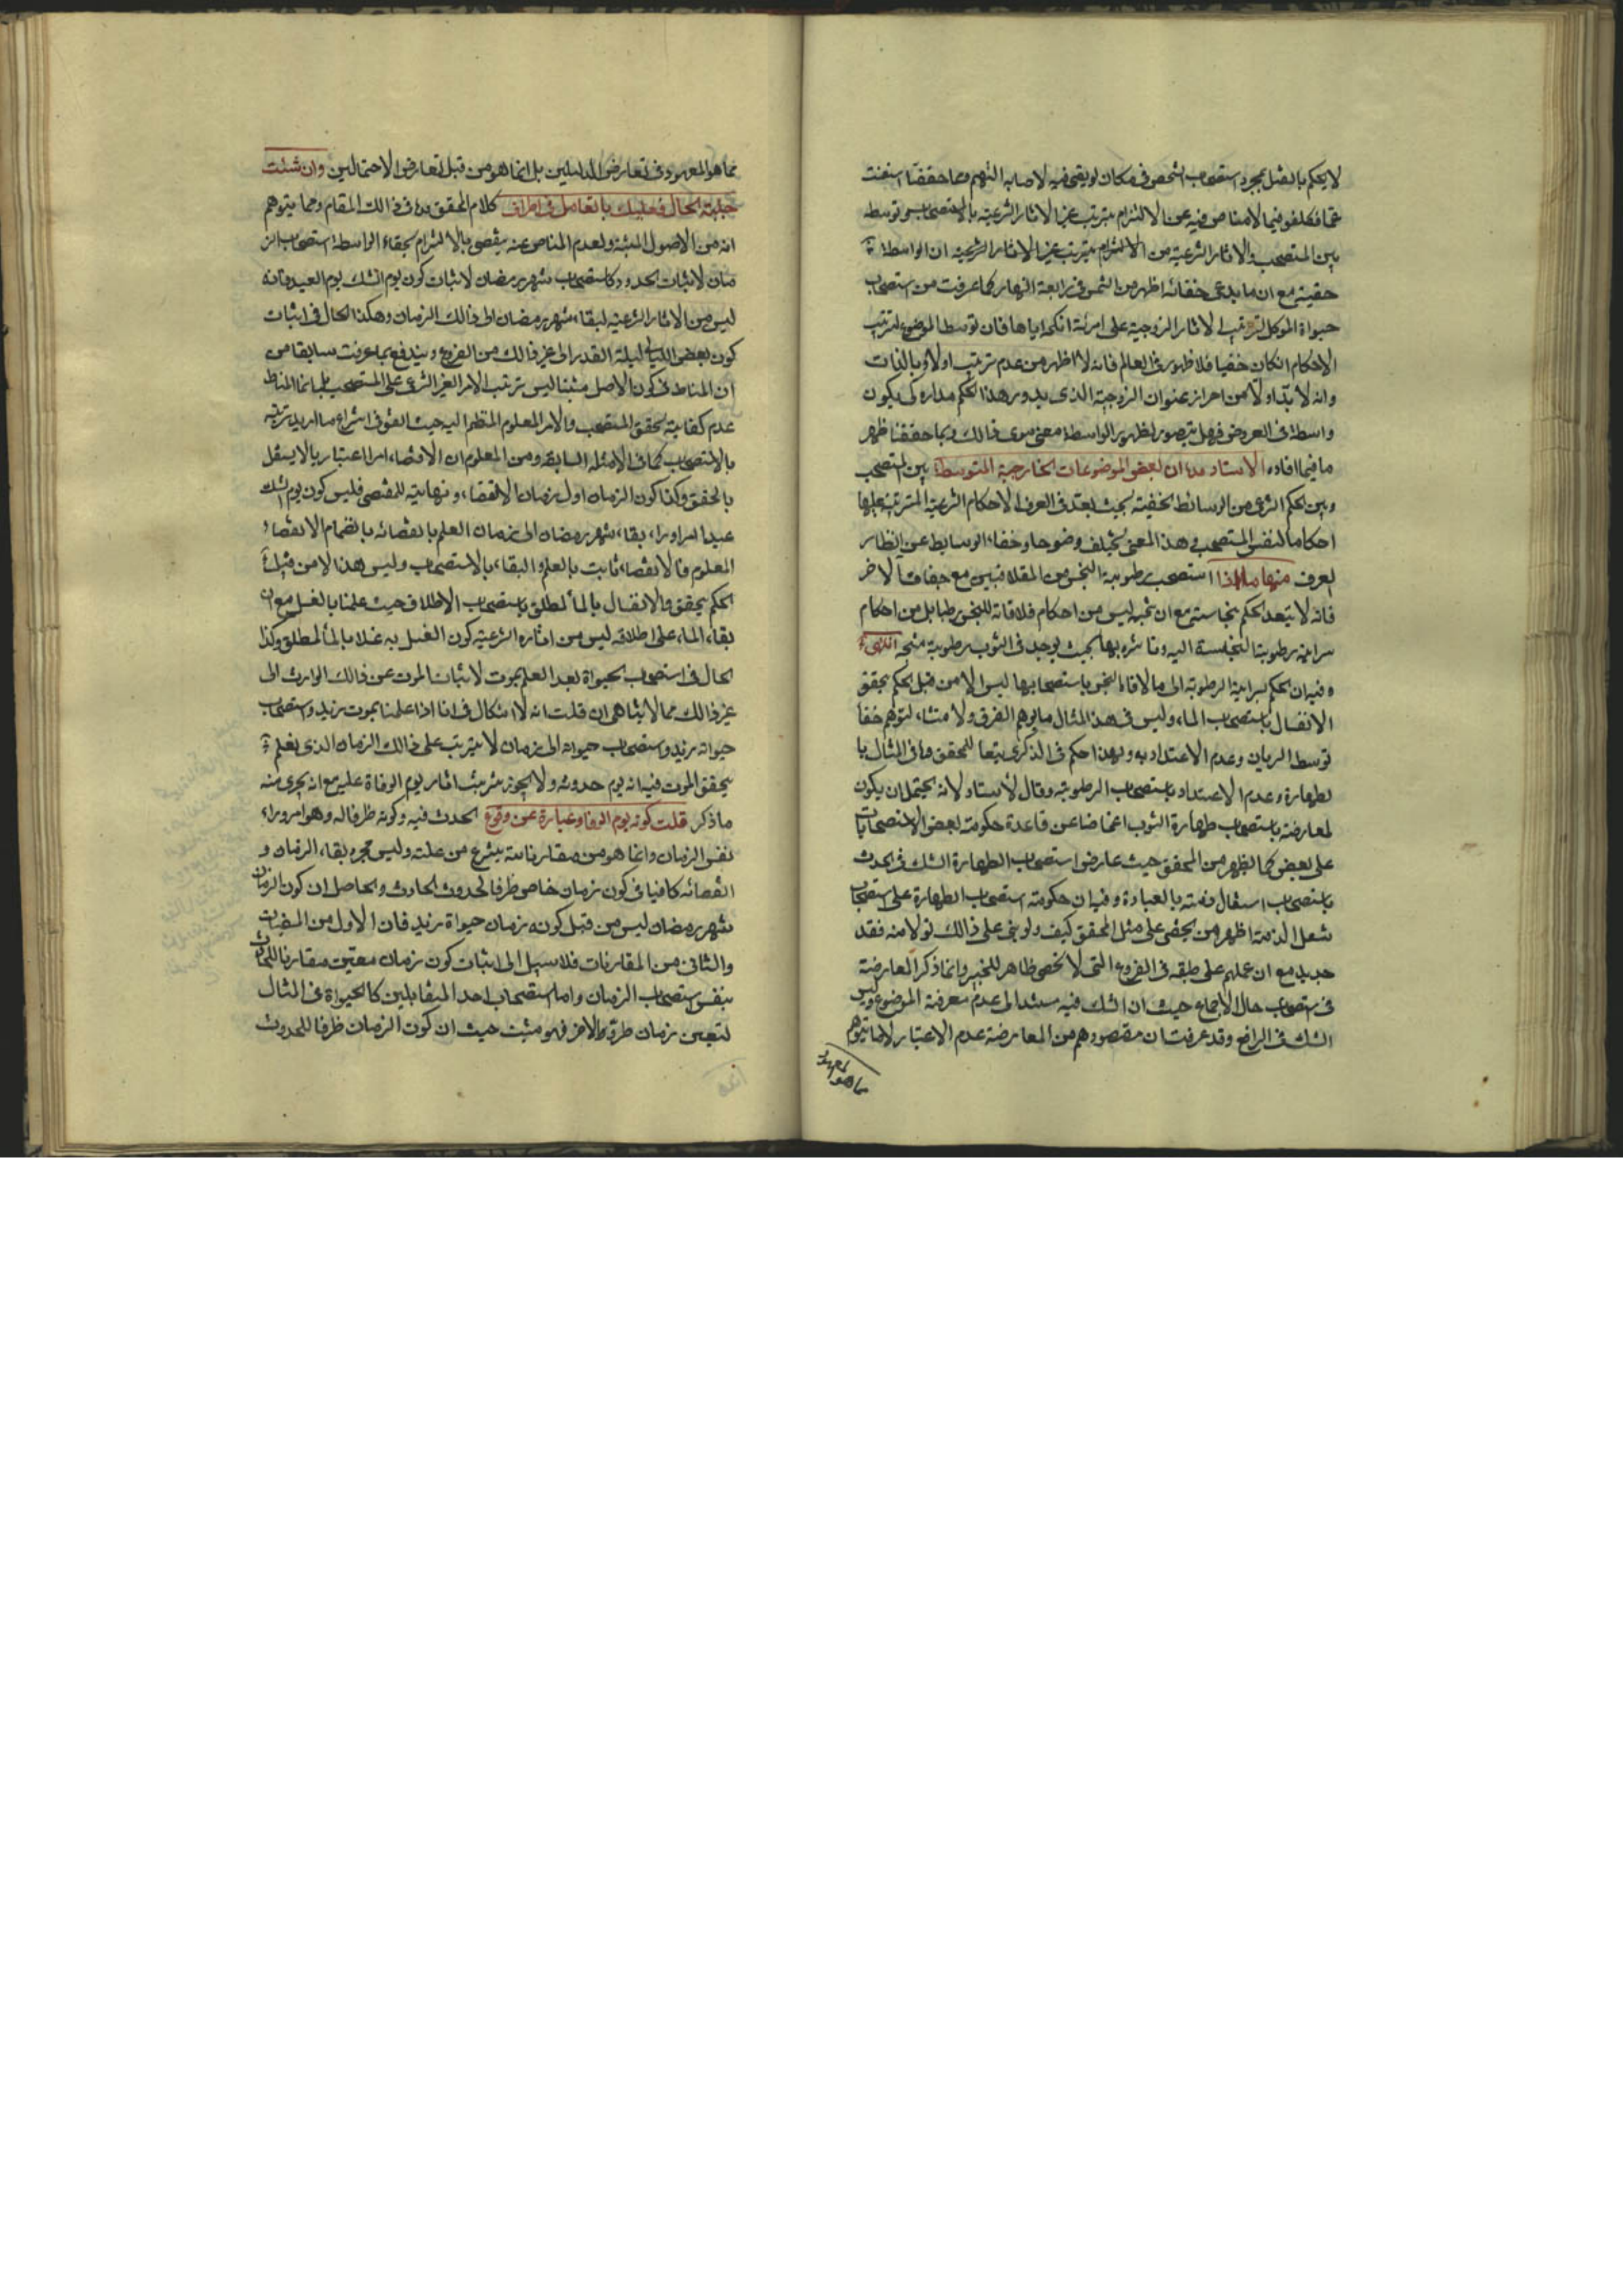 لا يحكم بالقتل بمجرد استصحاب الشخص في مكان لو بقي فيه لاصابه السهم ومما حققنا استغنت
عما تكلفو فيما لا مناص فيه عن الالتزام بترتب غير الاثار الشرعية بالاستصحاب بتوسطه
بين المستصحب والاثار الشرعية من الالتزام بترتب غير الاثار الشرعية ان الواسطة
خفية مع ان ما يدعى خفائه اظهر من الشمس في رابعة النهار كما عرفت من استصحاب
حيواة الموكل لترتب الاثار الزوجية على امرئة انكحه اياها فان توسط الموضوع لترتب
الاحكام انكان خفيا فلا ظهور في العالم فانه لا اظهر من عدم ترتب اولا وبالذات
وانه لا بد اولا من احراز عنوان الزوجية الذى يدور هذا الحكم مداره كى يكون
واسطة في العروض فهل يتصور لظهور الواسطة معنى سوى ذالك وبما حققنا ظهر
ما فيما افاده الاستاد مد ان لبعض الموضوعات الخارجية المتوسطة بين المستصحب
وبين الحكم الشرعى من الوسائط الخفية بحيث يعد في العرف الاحكام الشرعية المترتبة عليها
احكاما لنفس المستصحب وهذا المعنى يختلف وضوحا وخفاء الوسايط عن انظار
العرف منها ما اذا استصحب رطوبة النجس من المتلاقيين مع جفاف الاخر
فانه لا يبعد الحكم بنجاسته مع ان تنجسه ليس من احكام ملاقاته للنجس رطبا بل من احكام
سراية رطوبة النجاسة اليه وتاثره بها بحيث يوجد في الثوب رطوبة متنجسة انتهى
وفيه ان الحكم بسراية الرطوبة الى ما لاقاه النجس باستصحابها ليس الا من قبل الحكم بتحقق
الانغسال باستصحاب الماء وليس في هذا المثال ما يوهم الفرق ولا منشاء لتوهم خفا
توسط السريان وعدم الاعتداد به ولهذا حكم في الذكرى تبعا للمحقق وما في المثال با
لطهارة وعدم الاعتداد باستصحاب الرطوبة وقال الاستاد لانه يحتمل ان يكون
لمعارضة باستصحاب طهارة الثوب اغماضا عن قاعدة حكومة بعض الاستصحابات
على بعض كما يظهر من المحقق حيث عارض استصحاب الطهارة الشك في الحدث
باستصحاب اشتغال ذمته بالعبادة وفيه ان حكومة استصحاب الطهارة على استصحاب
شغل الذمة اظهر من يخفى على مثل المحقق كيف ولو بنى على ذالك تولا منه فقد
جديد مع ان عملهم على طبقه في الفروع التى لا تخصى ظاهر للخبير وانما ذكر المعارضة
في استصحاب حال الاجماع حيث ان الشك فيه مستند الى عدم معرفة الموضوع وليس
الشك في الرافع وقد عرفت ان مقصودهم من المعارضة عدم الاعتبار لا ما يتوهم
مما هو المعهود في تعارض الدليلين بل انما هو من قبل تعارض الاحتمالين وان شئت
جلية الحال فعليك بالتعامل في اطراف كلام المحقق في ذالك المقام ومما يتوهم
انه من الاصول المثبتة ولعدم المناص عنه يتفصى بالالتزام بخفاء الواسطة استصحاب الز
مان لاثبات الحدود كاستصحاب شهر رمضان لاثبات كون يوم الشك يوم العيد فانه
ليس من الاثار الشرعية لبقاء شهر رمضان الى ذالك الزمان وهكذا الحال في اثبات
كون بعض الليالى ليلة القدر الى غير ذالك من الفروع ويندفع بما عرفت سابقا من
ان المناط في كون الاصل مثبتا ليس ترتب الامر الغير الشرعى على المستصحب بل انما المناط
عدم كفاية تحقق المستصحب والامر المعلوم المنظم اليه حيث اتفق في انتزاع ما اريد ترتبه
بالاستصحاب كما في الامثلة السابقة ومن المعلوم ان الانقضاء امر اعتباريا لا يستقل
بالتحقق وكذا كون الزمان اول زمان الانقضاء ونهايته للمقتضى فليس كون يوم الشك
عيدا امرا وراء بقاء شهر رمضان الى زمان العلم بانقضائه بانضمام الانقضاء
المعلوم فالانقضاء ثابت بالعلم والبقاء بالاستصحاب وليس هذا الا من قبيل
الحكم بتحقق الانغسال بالماء المطلق باستصحاب الاطلاق حيث علمنا بالغسل مع ان
بقاء الماء على اطلاقه ليس من اثاره الشرعية كون الغسل به غسلا بالماء المطلق وكذا
الحال في استصحاب الحيواة بعد العلم بموت لاثبات الموت عن ذالك الوارث الى
غير ذالك مما لا يتناهى ان قلت انه لا اشكال في انا اذا علمنا بموت زيد واستصحاب
حيواته زيد واستصحاب حيواته الى زمان لا يترتب على ذالك الزمان الذى نعلم
بتحقق الموت فيه انه يوم حدوثه ولا يجوز ترتيب اثار يوم الوفاة عليه مع انه يجرى منه
ماذكر قلت كونه يوم الوفا عبارة عن وقوع الحدث فيه وكونه ظرفا له وهو امر وراء
نفس الزمان وانما هو من مقارناته ينتزع من علته وليس مجرد بقاء الزمان و
انقضائه كافيا في كون زمان خاص ظرفا لحدوث الحادث والحاصل ان كون الزمان
شهر رمضان ليس من قبل كونه زمان حيواة زيد فان الاول من المنقيات
والثانى من المقارنات فلا سبيل الى اثبات كون زمان معين مقارنا للحادث
بنفس استصحاب الزمان واما استصحاب احد المتقابلين كالحيواة في المثال
لتعيين زمان طرو الاخر فهو مثبت حيث ان كون الزمان ظرفا للحدوث